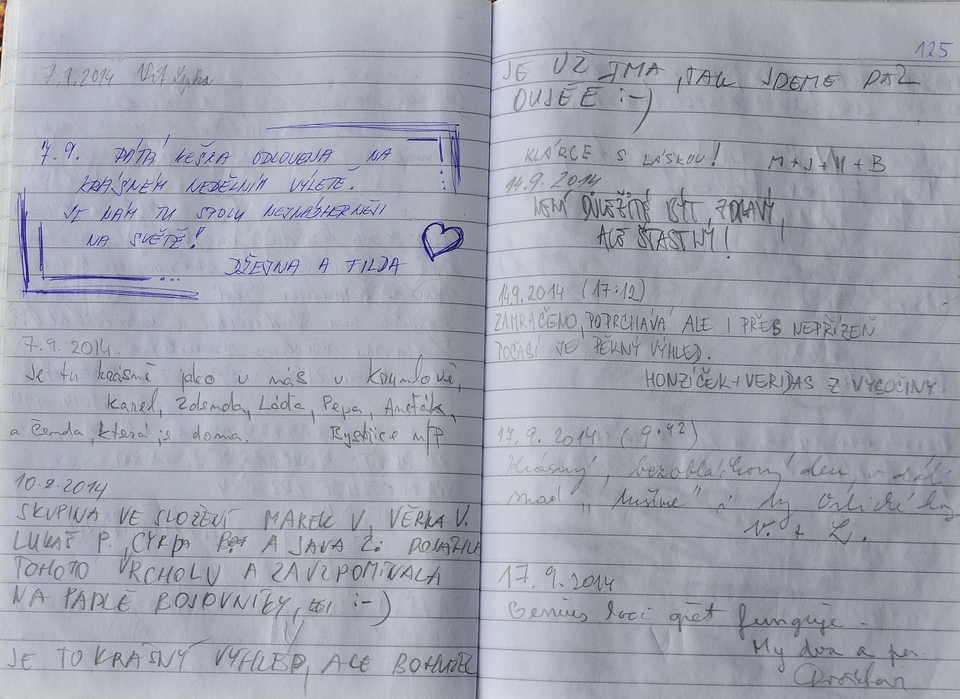 7.9.2014
7.9. PÁTÁ KEŠKA ODLOVENA NA
KRÁSNÉM NEDĚLNÍM VÝLETĚ.
JE NÁM TU SPOLU NEJNÁDHERNĚJI
NA SVĚTĚ!
DŽEJNA A TILDA
7.9.2014.
Je tu krásně jako u nás v Krumlově,
Karel, Zdenda, Láďa, Pepa,
a Čenda, která je doma. Bystřice n/P
10.9.2014
SKUPINA VE SLOŽENÍ MAREK V, VĚRKA V.
LUKÁŠ P. A JAVA Z. DOSÁHLA
TOHOTO VRCHOLU A ZAVZPOMÍNALA
NA PADLÉ BOJOVNÍKY, :-)
JE TO KRÁSNÝ VÝHLED, ALE BOHUŽEL
125
JE UŽ TMA, TAK JDEME PAŽ
DUJĚĚ :-)
KLÁRCE S LÁSKOU! M+J+H+B
14.9.2014
NENÍ DŮLEŽITÉ BÝT ZDRAVÝ,
ALE ŠŤASTNÝ!
14.9.2014 (17:12)
ZAMRAČENO, POPRCHÁVÁ ALE I PŘES NEPŘÍZEŇ
POČASÍ JE PĚKNÝ VÝHLED.
HONZÍČEK+VERIDAS Z VYSOČINY
17.9.2014 (9:42)
Krásný, bezoblačkový den, v dáli
snad a hy Orlické hy
V. + L.
17.9.2014
Genius loci opět funguje -
My dva a pes